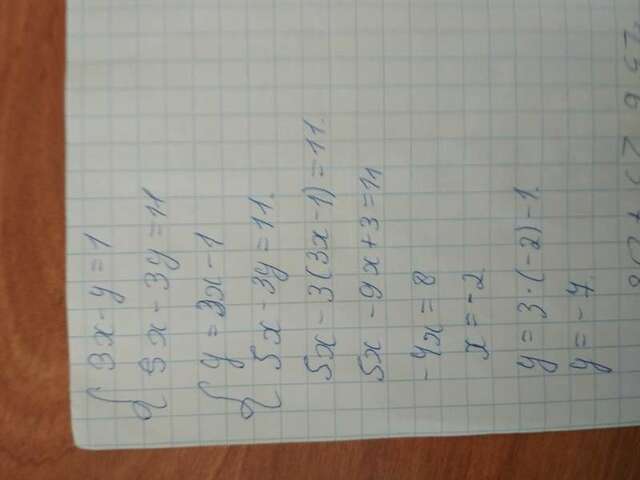 { 3x - y = 1
5x - 3y = 11
{ y = 3x - 1
5x - 3y = 11.
5x - 3(3x - 1) = 11.
5x - 9x + 3 = 11
-4x = 8
x = -2
y = 3 · (-2) - 1.
y = -7.